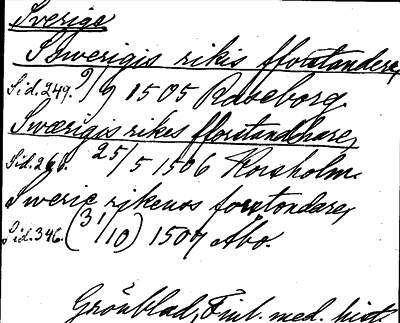 Sverige
Swerigis rikis fforstandere,
Sid. 249. 9/9 1505 Raseborg.
Swærigis rikes fforstandhare,
Sid. 266. 25/5 1506 Korsholm.
Sweric rikenos forstondare,
Sid. 346. (31/10) 1507 Åbo.
Grönblad, Finl. med. hist.